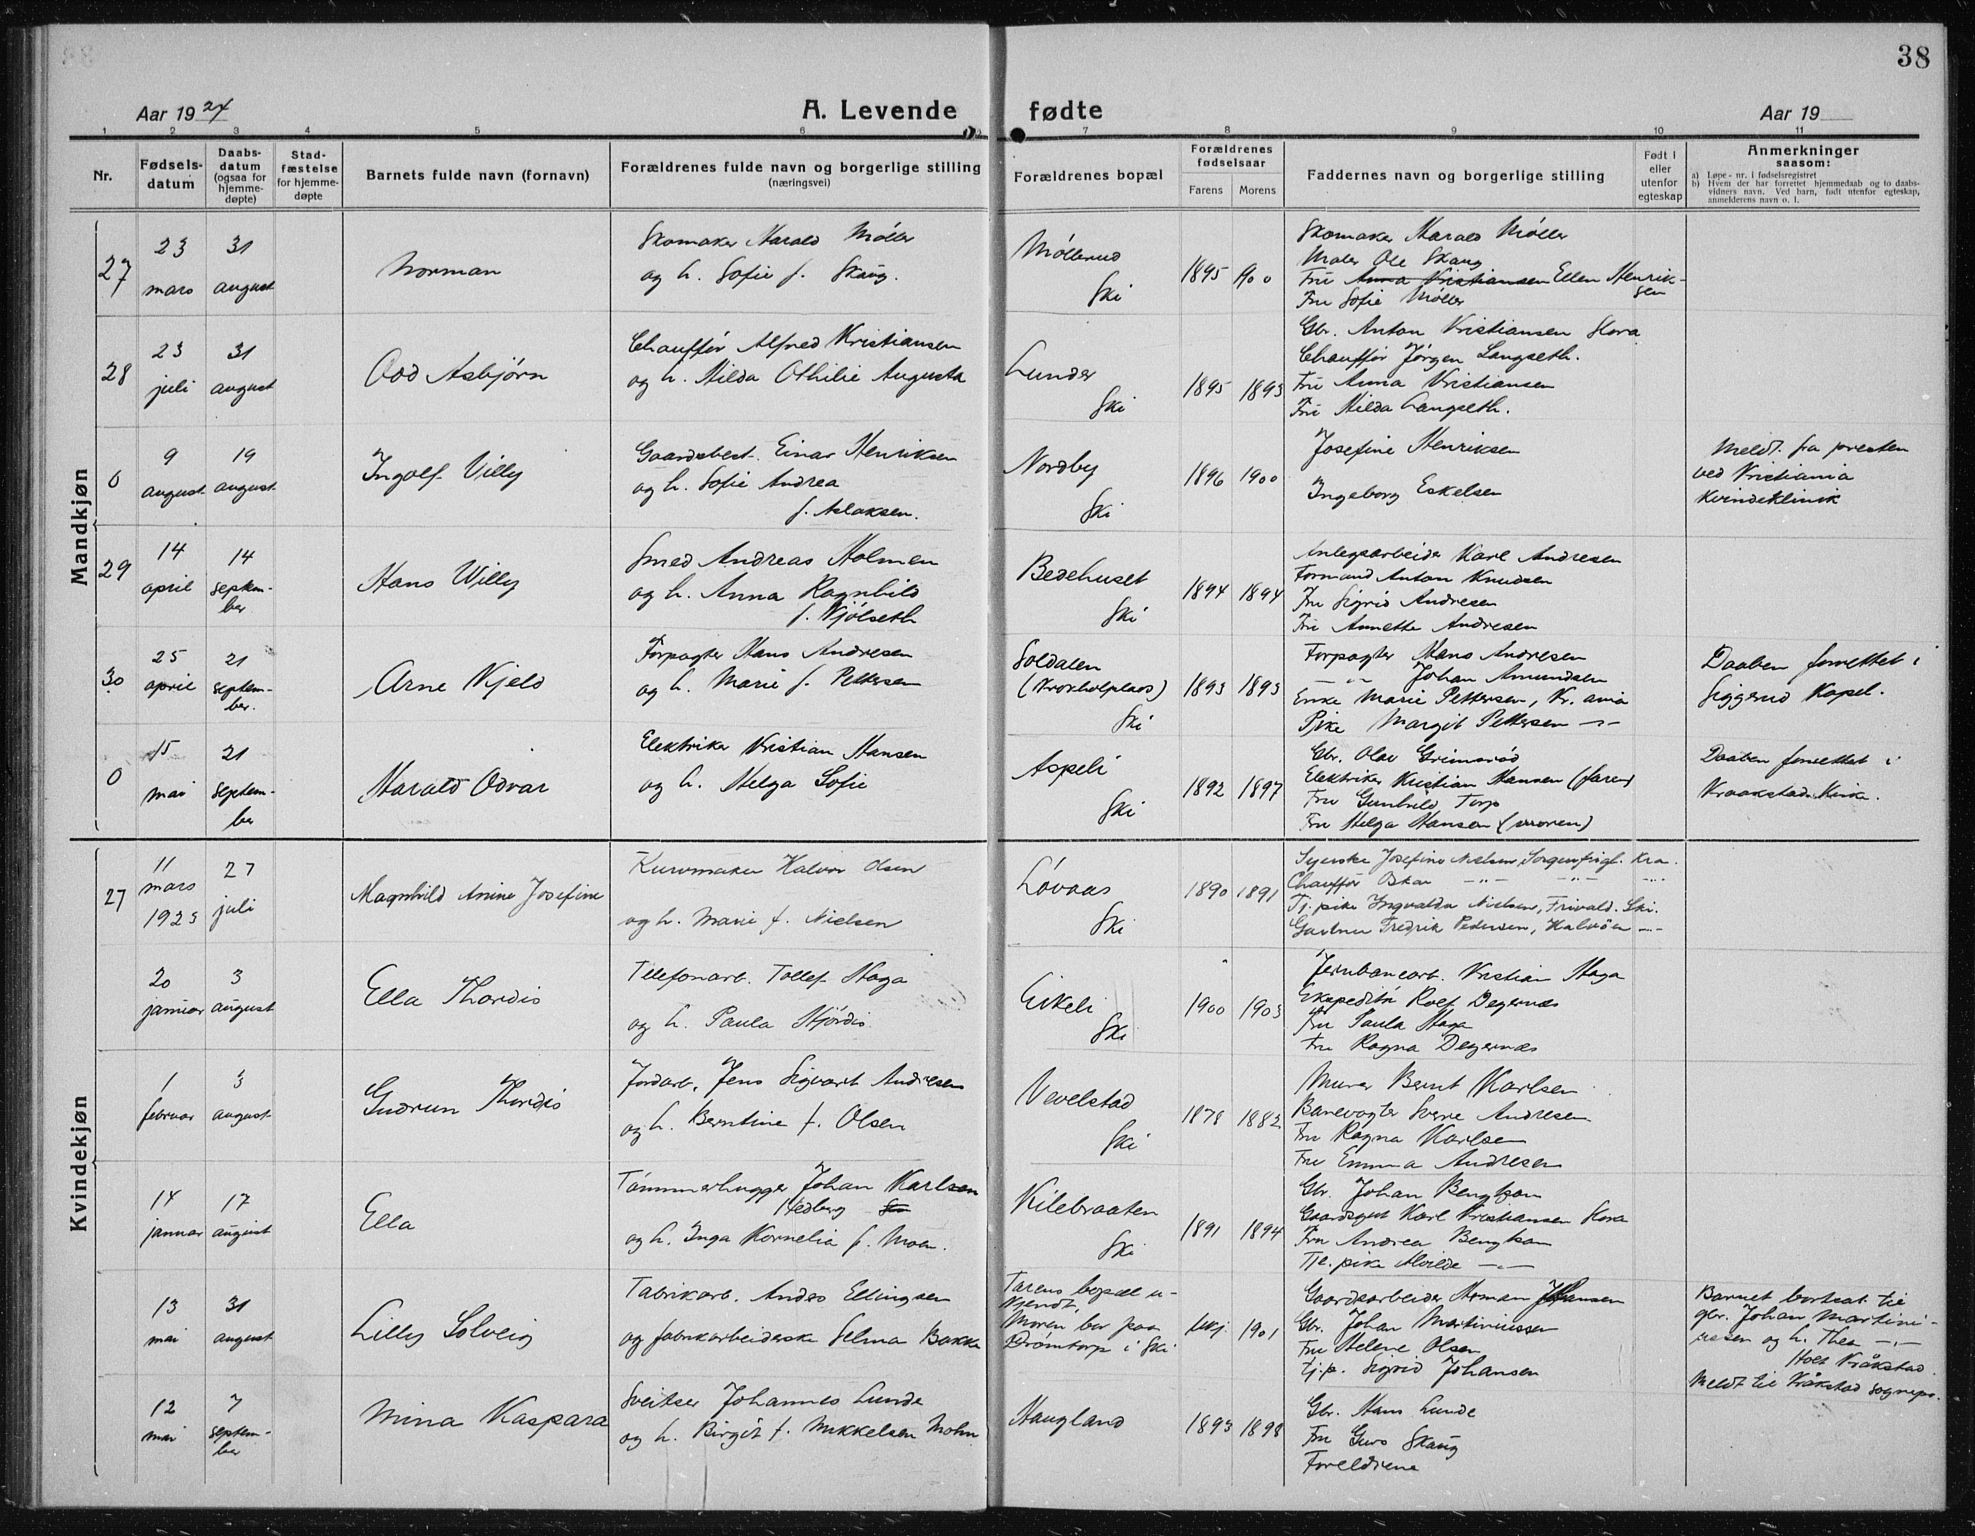 38
Aar 1924 A. Levende fødte Aar 19
1 2 3 4 5 6 7 8 9 10 11
Nr.
Fødsels-
datum
Daabs-
datum
(ogsaa for
hjemme-
døpte)
Stad-
fæstelse
for hjemme-
døpte
Barnets fulde navn (fornavn)
Forældrenes fulde navn og borgerlige stilling
(næringsvei)
Forældrenes bopæl
Forældrenes
fødselsaar
Farens Morens
Faddernes navn og borgerlige stilling
Født i
eller
utenfor
egteskap
Anmerkninger
saasom:
a) Løpe-nr. i fødselsregistret
b) Hvem der har forrettet hjemmedaab og to daabs-
vidners navn. Ved barn, født utenfor egteskap,
anmelderens navn o. l.
Mandkjøn
27
23
mars
31
august
Norman
Skomaker Harald Møller
og h. Sofie f. Skaug.
Møllerud
Ski
1895 1900
Skomaker Harald Møller
Maler Ole Skaug
Fru Anna Kristiansen Ellen Henrik-
sen
Fru Sofie Møller
28
23
juli
31
august
Odd Asbjørn
Chauffør Alfred Kristiansen
og h. Hilda Othilie Augusta
Lunder
Ski
1895 1893
Gbr. Anton Kristiansen Hora
Chauffør Jørgen Langseth.
Fru Anna Kristiansen
Fru Hilda Langseth.
0
9
august
19
august
Ingolf Villy
Gaardsbest. Einar Henriksen
og h. Sofie Andrea
f. Aslaksen.
Nordby
Ski
1896 1900
Josefine Henriksen
Ingeborg Eskelsen
Meldt. fra presten
ved Kristiania
Kvindeklinik
29
14
april
14
septem-
ber
Hans Willy
Smed Andreas Holmen
og h. Anna Ragnhild
f. Kjølseth
Bedehuset
Ski
1894 1894
Anlegsarbeider Karl Andresen
Formand Anton Knudsen
Fru Sigrid Andresen
Fru Annette Andresen
30
25
april
21
septem-
ber.
Arne Kjeld
Forpagter Hans Andresen
og h. Marie f. Pettersen
Soldalen
(Kroxholplads)
Ski
1893 1893
Forpagter Hans Andresen
— " — Johan Amundsen
Enke Marie Pettersen, Kr.ania
Pike Margit Pettersen — " —
Daaben forrettet i
Siggerud Kapel.
0
15
mai
21
septem-
ber
Harald Odvar
Elektriker Kristian Hansen
og h. Helga Sofie
Aspeli
Ski
1892 1897
Gbr. Olav Grimsrød
Elektriker Kristian Hansen (faren)
Fru Gunhild Torp
Fru Helga Hansen (moren)
Daaben forrettet i
Kraakstad Kirke.
Kvindekjøn
27
11
mars
1923
27
juli
Magnhild Anine Josefine
Kurvmaker Halvor Olsen
og h. Marie f. Nielsen
Løvaas
Ski
1890 1891
Syerske Josefine Nielsen, Sorgenfrigt. Kra.
Chauffør Oskar — " — — " — — " —
Tj. pike Ingvalda Nielsen, Frivald. Ski.
Gartner Fredrik Pedersen, Halvöen — " —
20
januar
3
august
Ella Thordis
Telefonarb. Tollef Haga
og h. Paula Hjördis
Eikeli
Ski
1900 1903
Jernbanearb. Kristian Haga
Ekspeditör Rolf Degernæs
Fru Paula Haga
Fru Ragna Degernæs
1
februar
3
august
Gudrun Thordis
Jordarb. Jens Sigvart Andresen
og h. Berntine f. Olsen
Vevelstad
Ski
1878 1882
Murer Bernt Karlsen
Banevogter Sverre Andresen
Fru Ragna Karlsen
Fru Emma Andresen
14
januar
17
august
Ella
Tømmerhugger Johan Karlsen
Hedberg
og h. Inga Kornelia f. Moen.
Kilebraaten
Ski
1891 1894
Gbr. Johan Bengtson
Gaardsgut Karl Kristiansen Hora
Fru Andrea Bengtson
Tje. pike Alvilde — " —
13
mai
31
august
Lilly Solveig
Fabrikarb. Anders Ellingsen
og fabrikarbeiderske Selma Bakke
Farens bopæl u-
kjendt.
Moren bor paa
Drömtorp i Ski
ukj. 1901
Gaardsarbeider Herman Johansen
Gbr. Johan Martiniussen
Fru Helene Olsen
tj.p. Sigrid Johansen
Barnet bortsat til
gbr. Johan Martini-
ussen og h. Thea — " —
Holt Kråkstad
Meldt til Kråkstad sognepr.
12
mai
7
septem-
ber
Mina Kaspara
Sveitser Johannes Lunde
og h. Birgit f. Mikkelsen Mohn
Haugland
1893 1898
Gbr. Hans Lunde
Fru Guro Skaug
Foreldrene